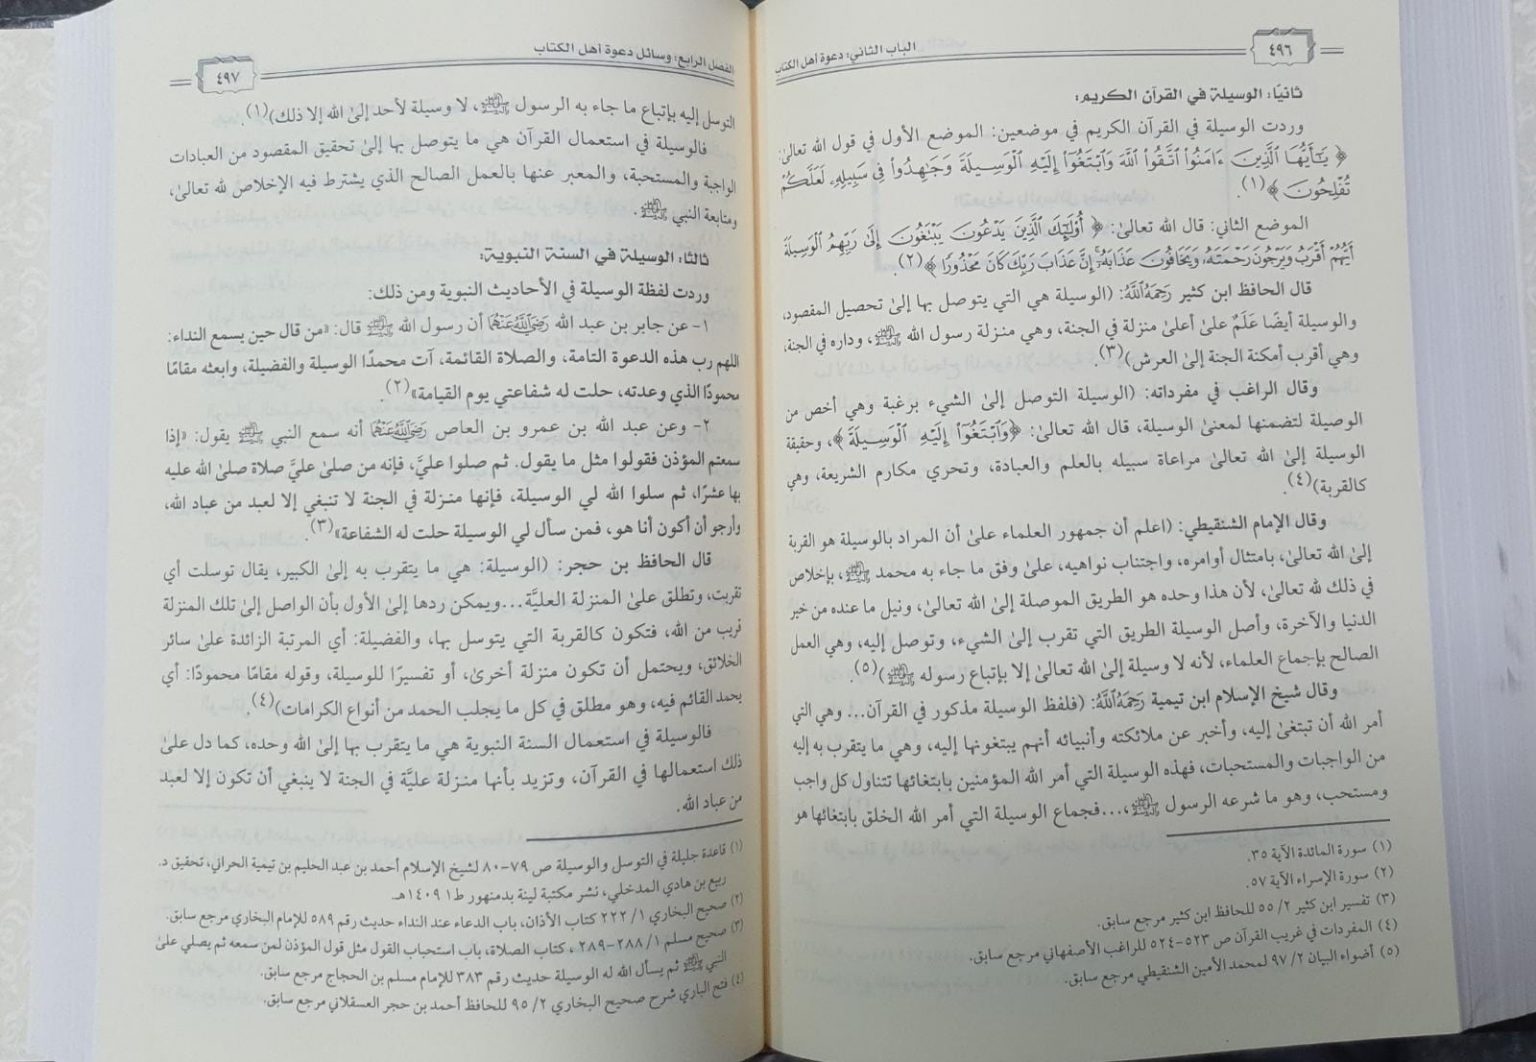 ٤٩٦
الباب الثاني: دعوة أهل الكتاب
ثانيًا: الوسيلة في القرآن الكريم:
وردت الوسيلة في القرآن الكريم في موضعين: الموضع الأول في قول الله تعالىٰ:
﴿ يَـٰٓأَيُّهَا ٱلَّذِينَ ءَامَنُوا۟ ٱتَّقُوا۟ ٱللَّهَ وَٱبْتَغُوٓا۟ إِلَيْهِ ٱلْوَسِيلَةَ وَجَـٰهِدُوا۟ فِى سَبِيلِهِۦ لَعَلَّكُمْ
تُفْلِحُونَ ﴾(١).
الموضع الثاني: قال الله تعالىٰ: ﴿ أُو۟لَـٰٓئِكَ ٱلَّذِينَ يَدْعُونَ يَبْتَغُونَ إِلَىٰ رَبِّهِمُ ٱلْوَسِيلَةَ
أَيُّهُمْ أَقْرَبُ وَيَرْجُونَ رَحْمَتَهُۥ وَيَخَافُونَ عَذَابَهُۥٓ إِنَّ عَذَابَ رَبِّكَ كَانَ مَحْذُورًا ﴾(٢).
قال الحافظ ابن كثير رَحِمَهُ ٱللَّهُ: (الوسيلة هي التي يتوصل بها إلىٰ تحصيل المقصود،
والوسيلة أيضًا عَلَمٌ علىٰ أعلىٰ منزلة في الجنة، وهي منزلة رسول الله ﷺ، وداره في الجنة،
وهي أقرب أمكنة الجنة إلىٰ العرش)(٣).
وقال الراغب في مفرداته: (الوسيلة التوصل إلىٰ الشيء برغبة وهي أخص من
الوصيلة لتضمنتها لمعنىٰ الوسيلة، قال الله تعالىٰ: ﴿وَٱبْتَغُوٓا۟ إِلَيْهِ ٱلْوَسِيلَةَ﴾، وحقيقة
الوسيلة إلىٰ الله تعالىٰ مراعاة سبيله بالعلم والعبادة، وتحري مكارم الشريعة، وهي
كالقربة)(٤).
وقال الإمام الشنقيطي: (اعلم أن جمهور العلماء علىٰ أن المراد بالوسيلة هو القربة
إلىٰ الله تعالىٰ، بامتثال أوامره، واجتناب نواهيه، علىٰ وفق ما جاء به محمد ﷺ، بإخلاص
في ذلك لله تعالىٰ، لأن هذا وحده هو الطريق الموصلة إلىٰ الله تعالىٰ، ونيل ما عنده من خير
الدنيا والآخرة، وأصل الوسيلة الطريق التي تقرب إلىٰ الشيء، وتوصل إليه، وهي العمل
الصالح بإجماع العلماء، لأنه لا وسيلة إلىٰ الله تعالىٰ إلا بإتباع رسوله ﷺ)(٥).
وقال شيخ الإسلام ابن تيمية رَحِمَهُ ٱللَّهُ: (فلفظ الوسيلة مذكور في القرآن... وهي التي
أمر الله أن تبتغىٰ إليه، وأخبر عن ملائكته وأنبيائه أنهم يبتغونها إليه، وهي ما يتقرب به إليه
من الواجبات والمستحبات، فهذه الوسيلة التي أمر الله المؤمنين بابتغائها تتناول كل واجب
ومستحب، وهو ما شرعه الرسول ﷺ،...فجماع الوسيلة التي أمر الله الخلق بابتغائها هو
(١) سورة المائدة الآية ٣٥.
(٢) سورة الإسراء الآية ٥٧.
(٣) تفسير ابن كثير ٢/ ٥٥ للحافظ ابن كثير مرجع سابق.
(٤) المفردات في غريب القرآن ص ٥٢٣-٥٢٤ للراغب الأصفهاني مرجع سابق.
(٥) أضواء البيان ٢/ ٩٧ لمحمد الأمين الشنقيطي مرجع سابق.
الفصل الرابع: وسائل دعوة أهل الكتاب
٤٩٧
التوسل إليه بإتباع ما جاء به الرسول ﷺ، لا وسيلة لأحد إلىٰ الله إلا ذلك)(١).
فالوسيلة في استعمال القرآن هي ما يتوصل بها إلىٰ تحقيق المقصود من العبادات
الواجبة والمستحبة، والمعبر عنها بالعمل الصالح الذي يشترط فيه الإخلاص لله تعالىٰ،
ومتابعة النبي ﷺ.
ثالثًا: الوسيلة في السنة النبوية:
وردت لفظة الوسيلة في الأحاديث النبوية ومن ذلك:
١- عن جابر بن عبد الله رَضِيَ ٱللَّهُ عَنْهُمَا أن رسول الله ﷺ قال: «من قال حين يسمع النداء:
اللهم رب هذه الدعوة التامة، والصلاة القائمة، آت محمدًا الوسيلة والفضيلة، وابعثه مقامًا
محمودًا الذي وعدته، حلت له شفاعتي يوم القيامة»(٢).
٢- وعن عبد الله بن عمرو بن العاص رَضِيَ ٱللَّهُ عَنْهُمَا أنه سمع النبي ﷺ يقول: «إذا
سمعتم المؤذن فقولوا مثل ما يقول. ثم صلوا عليَّ، فإنه من صلىٰ عليَّ صلاة صلىٰ الله عليه
بها عشرًا، ثم سلوا الله لي الوسيلة، فإنها منزلة في الجنة لا تنبغي إلا لعبد من عباد الله،
وأرجو أن أكون أنا هو، فمن سأل لي الوسيلة حلت له الشفاعة»(٣).
قال الحافظ بن حجر: (الوسيلة: هي ما يتقرب به إلىٰ الكبير، يقال توسلت أي
تقربت، وتطلق علىٰ المنزلة العليَّة...ويمكن ردها إلىٰ الأول بأن الواصل إلىٰ تلك المنزلة
قريب من الله، فتكون كالقربة التي يتوسل بها، والفضيلة: أي المرتبة الزائدة علىٰ سائر
الخلائق، ويحتمل أن تكون منزلة أخرىٰ، أو تفسيرًا للوسيلة، وقوله مقامًا محمودًا: أي
يحمد القائم فيه، وهو مطلق في كل ما يجلب الحمد من أنواع الكرامات)(٤).
فالوسيلة في استعمال السنة النبوية هي ما يتقرب بها إلىٰ الله وحده، كما دل علىٰ
ذلك استعمالها في القرآن، وتزيد بأنها منزلة عليَّة في الجنة لا ينبغي أن تكون إلا لعبد
من عباد الله.
(١) قاعدة جليلة في التوسل والوسيلة ص ٧٩-٨٠ لشيخ الإسلام أحمد بن عبد الحليم بن تيمية الحراني، تحقيق د.
ربيع بن هادي المدخلي، نشر مكتبة لينة بدمنهور ط١ ١٤٠٩هـ.
(٢) صحيح البخاري ١/ ٢٢٢ كتاب الأذان، باب الدعاء عند النداء حديث رقم ٥٨٩ للإمام البخاري مرجع سابق.
(٣) صحيح مسلم ١/ ٢٨٨-٢٨٩، كتاب الصلاة، باب استحباب القول مثل قول المؤذن لمن سمعه ثم يصلي علىٰ
النبي ﷺ ثم يسأل الله له الوسيلة حديث رقم ٣٨٣ للإمام مسلم بن الحجاج مرجع سابق.
(٤) فتح الباري شرح صحيح البخاري ٢/ ٩٥ للحافظ أحمد بن حجر العسقلاني مرجع سابق.